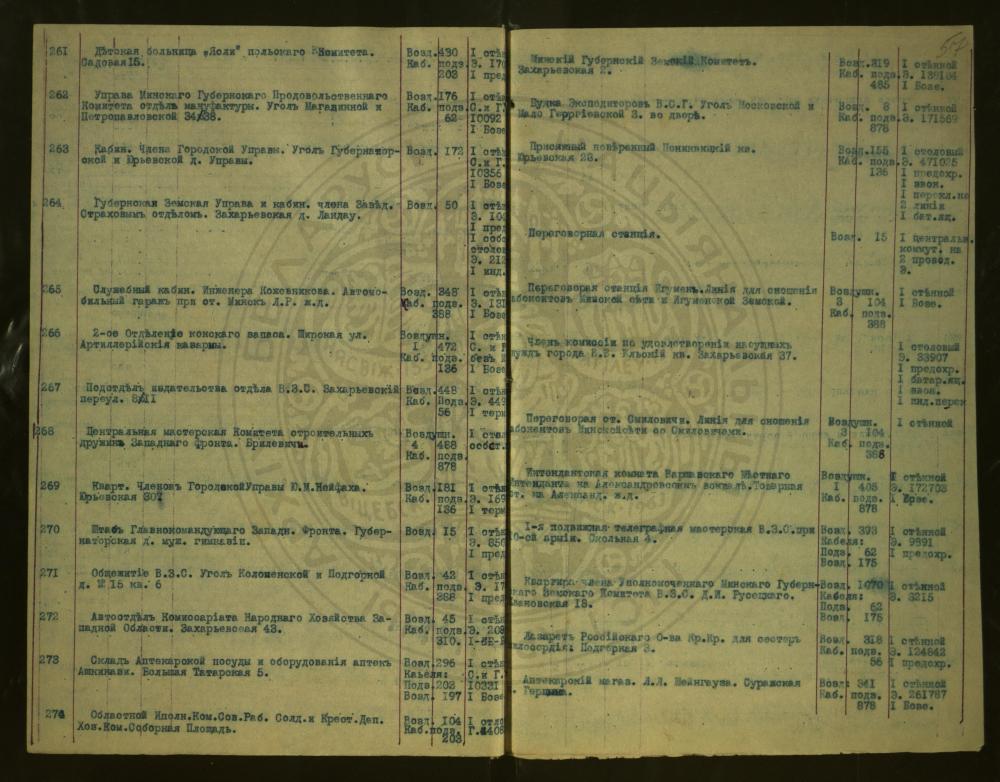 57
261 Дѣтская больница „Ясли" польскаго Комитета.
Садовая 15.
Возд. 430
Каб. подз.
203
I стѣн
Э. 170
I пред
262 Управа Минскаго Губернскаго Продовольственнаго
Комитета отдѣлъ мануфактуры. Уголъ Магазинной и
Петропавловской 34/38.
Возд. 176
Каб. подз.
62
I стѣн
С. и Г.
I0092
I Бозе
263 Кабин. Члена Городской Управы. Уголъ Губернатор-
ской и Юрьевской д. Управы.
Возд. 172
I стѣн
С. и Г.
I0356
I Бозе
264 Губернская Земская Управа и кабин. члена Завѣд.
Страховымъ отдѣломъ. Захарьевская д. Ландау.
Возд. 50
I стѣн
Э. 10
I пред
I собс
столов
Э. 212
I инд.
265 Служебный кабин. Инженера Кожевникова. Автомо-
бильный гаражъ при ст. Минскъ Л.Р. ж.д.
Возд. 348
Каб. подз.
388
I стѣн
Э. 131
I Бозе
266 2-ое Отдѣленіе конскаго запаса. Широкая ул.
Артиллерійскія казармы.
Воздушн.
I 472
Каб. подз.
136
I стѣн
С. и Г
безъ
I Бозе
267 Подотдѣлъ издательства отдѣла В.З.С. Захарьевскій
переул. 8/II
Возд. 448
Каб. Подз.
56
I стѣн
Э. 449
I терм
268 Центральная мастерская Комитета строительныхъ
дружинъ Западнаго фронта. Брилевичи.
Воздушн.
4 488
Каб. подз.
878
I стол
собст.
269 Кварт. Членовъ Городской Управы Ю.М. Нейфаха.
Юрьевская 30
Возд. 181
Каб. подз.
136
I стѣн
Э. 169
I терм
270 Штабъ Главнокомандующаго Западн. Фронта. Губер-
наторская д. муж. гимназіи.
Возд. 15
I стѣн
Э. 350
I пред
271 Общежитіе В.З.С. Уголъ Коломенской и Подгорной
д. № 15 кв. 6
Возд. 42
Каб. подз.
388
I стѣн
Э. 17
I пред
272 Автоотдѣлъ Комиссаріата Народнаго Хозяйства За-
падной Области. Захарьевская 43.
Возд. 45
Каб. подз.
310.
I стѣн
Э. 208
273 Складъ Аптекарской посуды и оборудованія аптекъ
Ашкинази. Большая Татарская 5.
Возд. 296
Кабеля:
Подз. 203
Возд. 197
I стѣн
С. и Г.
I0331
I Бозе
274 Областной Иполн.Ком.Сов.Раб. Солд.и Крест.Деп.
Хоз.Ком.Соборная Площадь.
Возд. 104
Каб.подз.
203
I
Г.4408
Минскій Губернскій Земскій Комитетъ.
Захарьевская 2.
Возд. 319
Каб. подз.
485
I стѣнной
Э. 138184
I Бозе.
Будка Экспедиторовъ В.С.Г. Уголъ Московской и
Мало Георгіевской 3. во дворѣ.
Возд. 8
Каб. подз.
878
I стѣнной
Э. 171569
Присяжный повѣренный Пониквицкій кв.
Юрьевская 23.
Возд. 155
Каб. подз.
136
I столовый
Э. 471025
I предохр.
I звон.
I перекл.на
2 линіи
I бат.ящ.
Переговорная станція.
Возд. 15
I центральн.
коммут. на
2 провод.
Э.
Переговорая станція Игуменъ. Линія для сношенія
абонентовъ Минской сѣти и Игуменской Земской.
Воздушн.
3 104
Каб. подз.
388
I стѣнной
I Бозе.
Членъ комиссіи по удовлетворенію насущныхъ
нуждъ города кв. Захарьевская 37.
I столовый
Э. 33907
I предохр.
I батар.ящ.
I звон.
I инд.перек
Переговорая ст. Смиловичи. Линія для сношенія
абонентовъ Минской сѣти со Смиловичами.
Воздушн.
3 104
Каб. подз.
388
I стѣнной
Интендантская комната Варшавскаго Мѣстнаго
Интенданта на Александровскомъ вокзалѣ. Товарная
ст. на Александ. ж.д.
Воздушн.
I 408
Каб. подз.
878
I стѣнной
Э. 172703
I Бозе.
I-я подвижная телеграфная мастерская В.З.С.при
10-ой арміи. Скольная 4.
Возд. 393
Кабеля:
Подз. 62
Возд. 175
I стѣнной
Э. 9891
I предохр.
Квартира члена Уполномоченнаго Минскаго Губерн-
скаго Земскаго Комитета В.З.С. Д.И. Русецкаго.
Ивановская 18.
Возд. 1070
Кабеля:
Подз. 62
Возд. 175
I стѣнной
Э. 3215
Лазаретъ Россійскаго О-ва Кр.Кр. для сестеръ
милосердія: Подгорная 3.
Возд. 318
Каб. подз.
56
I стѣнной
Э. 124842
I предохр.
Аптекарскій магаз. Л.Л. Шейнгауза. Суражская
Герцмана.
Возд: 341
Каб. подз.
878
I стѣнной
Э. 261787
I Бозе.